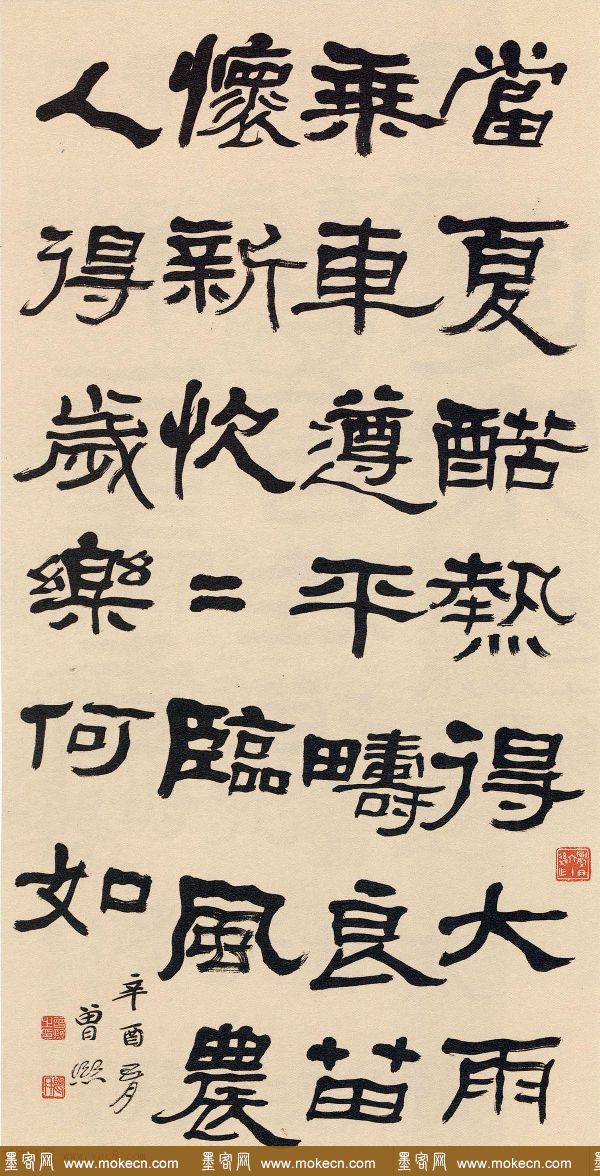 當夏酷熱得大雨
乘車遵平疇良苗
懷新快=臨風農
人得歲樂何如
辛酉五月
曾熙
墨客网 www.mokecn.com 墨客网 www.mokecn.com 墨客网 www.mokecn.com 墨客网 www.mokecn.com